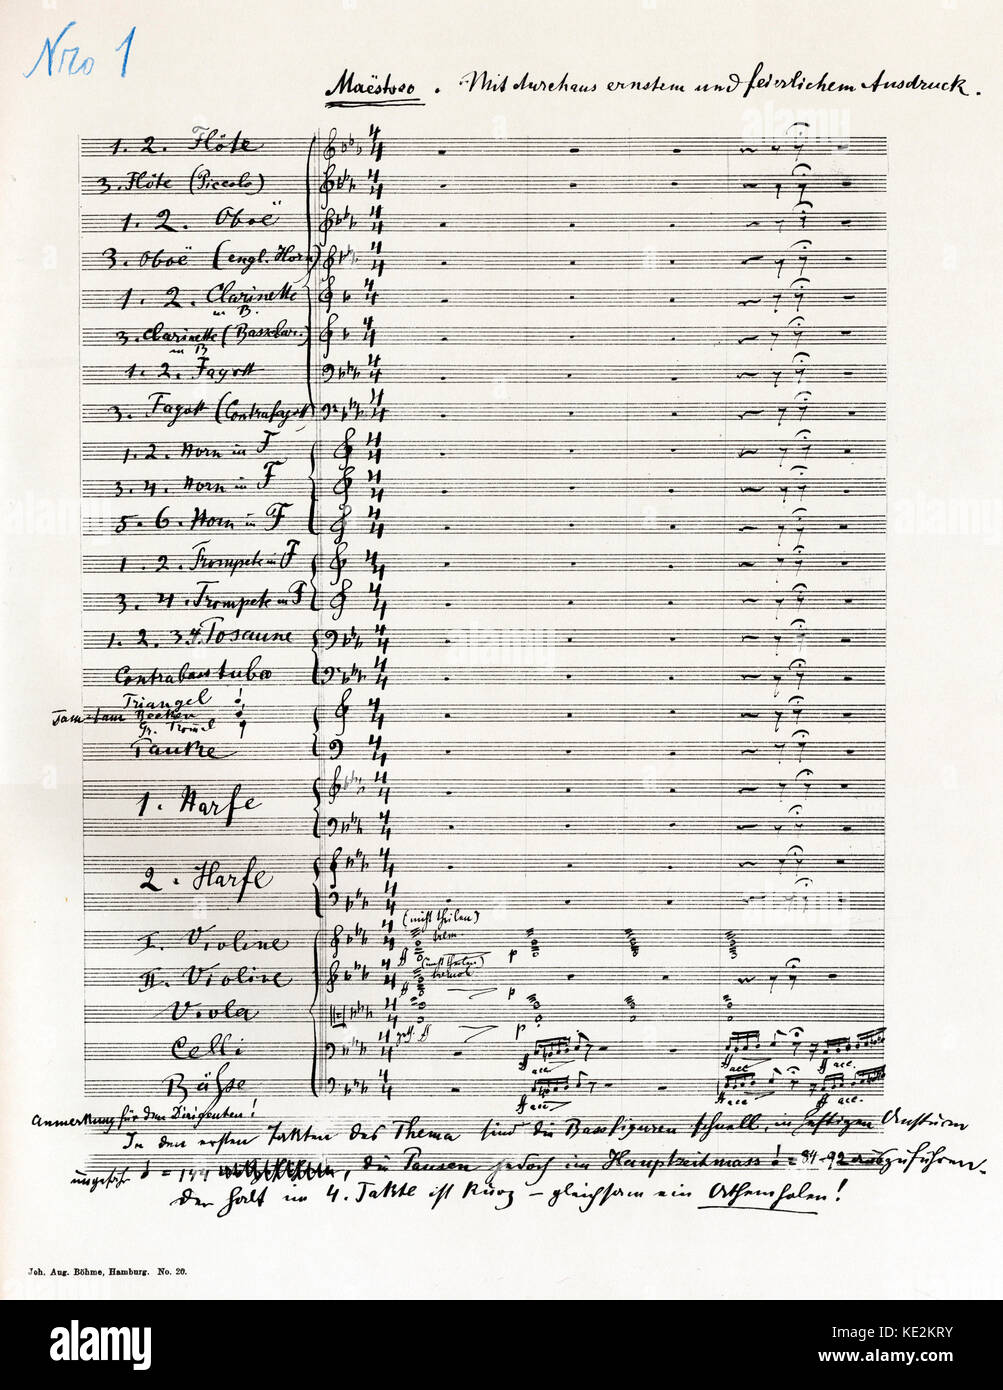 Nro 1
Maëstoso. Mit durchaus ernstem und feierlichem Ausdruck.
1. 2. Flöte
3. Flöte (Piccolo)
1. 2. Oboë
3. Oboë (engl. Horn)
1. 2. Clarinette
in B.
3. Clarinette (Bassclar.)
in B
1. 2. Fagott
3. Fagott (Contrafagott)
1. 2. Horn in F
3. 4. Horn in F
5. 6. Horn in F
1. 2. Trompete in F
3. 4. Trompete in F
1. 2. 3. 4. Posaune
Contrabasstuba
Triangel
Tam-tam Becken
Gr. Trom̄el
Pauke
1. Harfe
2. Harfe
(nicht theilen)
trem.
I. Violine
ff p
(nicht theilen)
tremol.
II. Violine
p
Viola
geth. ff p
Celli
ff acc ff acc ff acc
Bässe
ff acc ff acc ff acc
Anmerkung für den Dirigenten!
In den ersten Takten des Thema sind die Bassfiguren schnell, in heftigem Ansturm
ungefähr = 144, die Pausen jedoch im Hauptzeitmass = 84-92 auszuführen.
Der Halt im 4. Takte ist kurz – gleichsam ein Athemholen!
Joh. Aug. Böhme, Hamburg. No. 20.
alamy
Image ID: KE2KRY
www.alamy.com